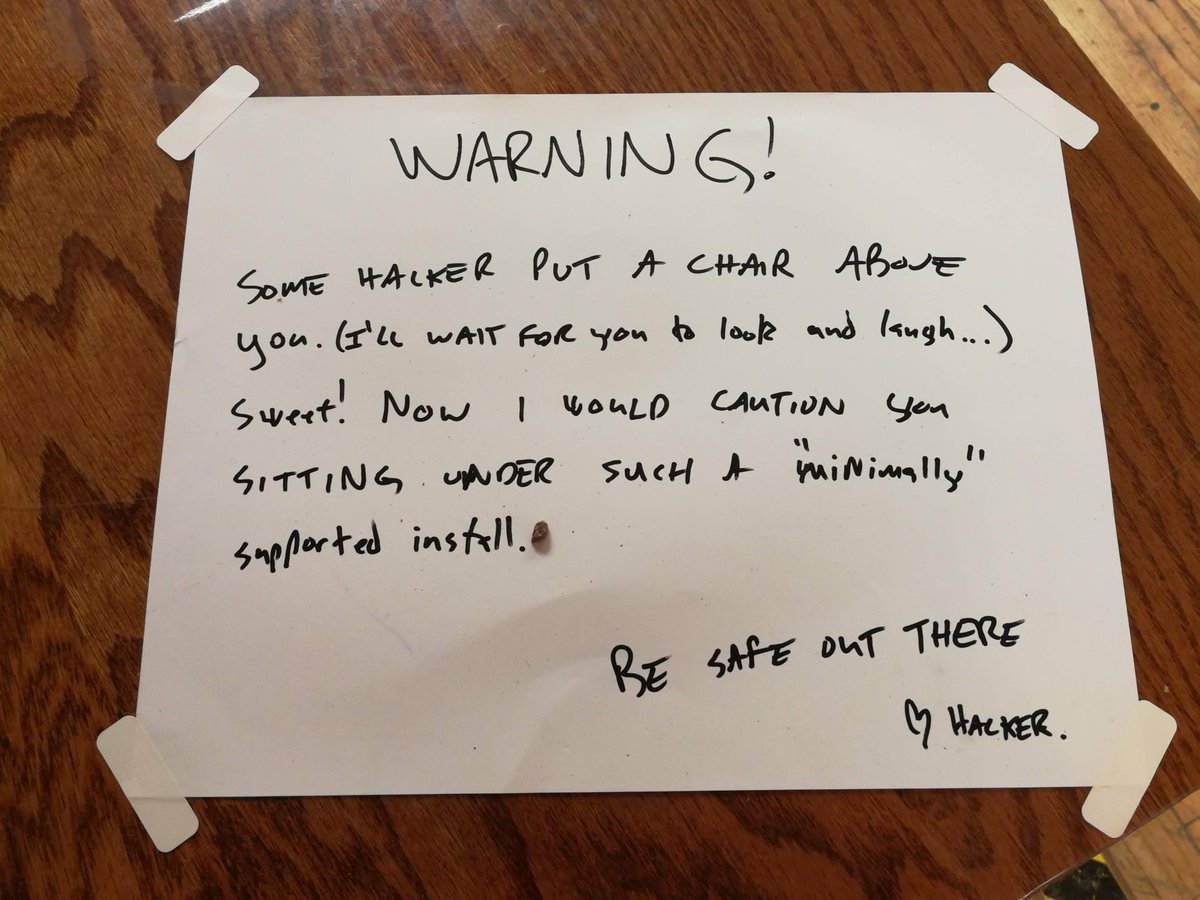 WARNING!
SOME HACKER PUT A CHAIR ABOVE
you. (I'LL WAIT FOR you to look and laugh...)
Sweet! NOW I WOULD CAUTION you
SITTING UNDER SUCH A "miNimally"
supported install.
BE SAFE OUT THERE
♡ HACKER.